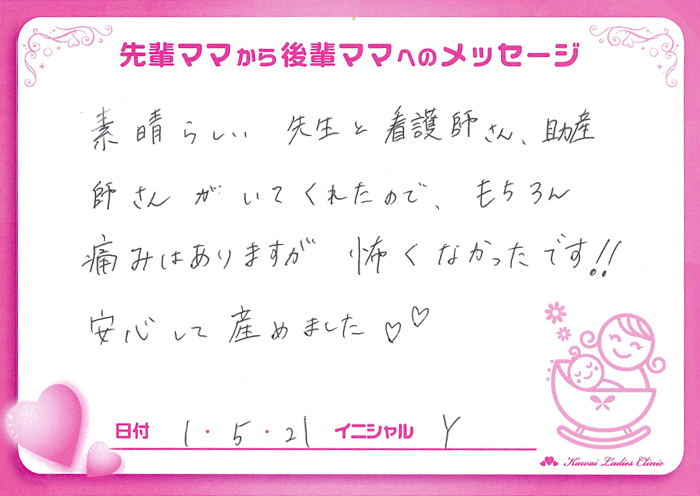 先輩ママから後輩ママへのメッセージ
素晴らしい 先生と看護師さん、助産
師さんがいてくれたので、もちろん
痛みはありますが 怖くなかったです!!
安心して産めました♡♡
日付 1・5・21 イニシャル Y
Kawai Ladies Clinic